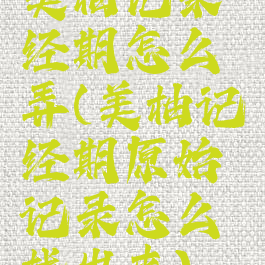 美柚记录
经期怎么
弄(美柚记
经期原始
记录怎么